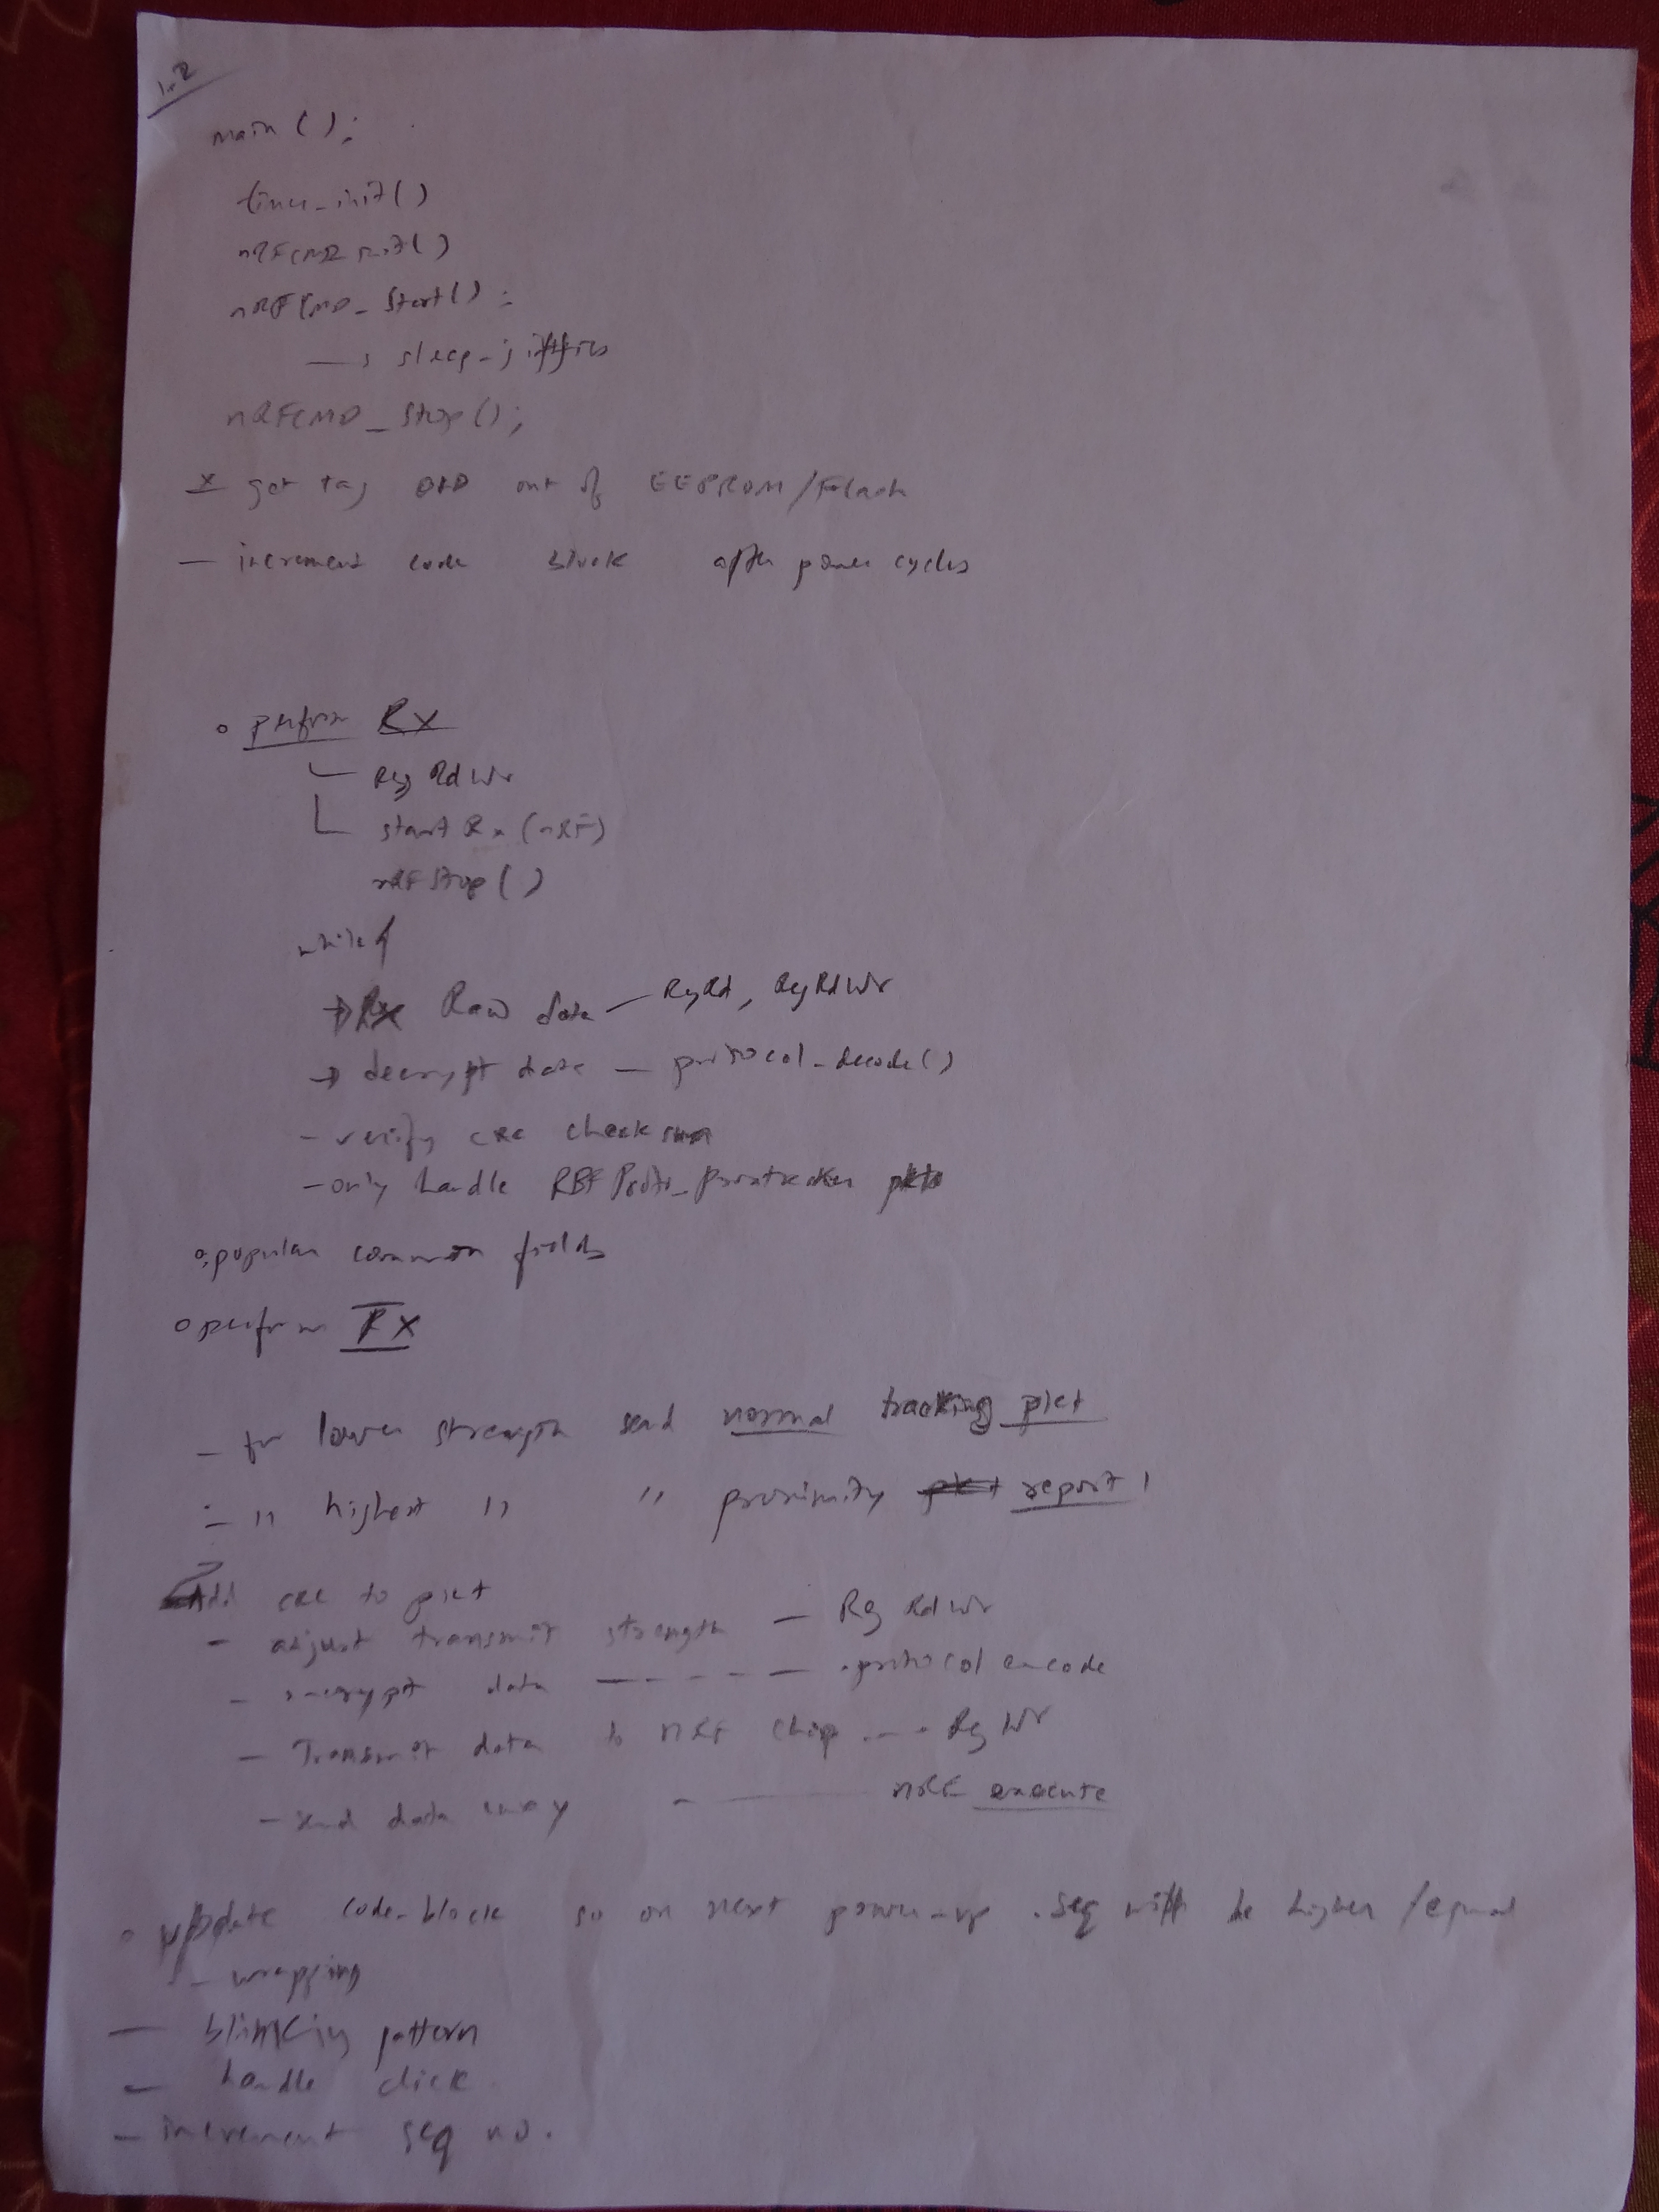 1.2
main ( ) ;
timer_init ( )
nRFCMD_init ( )
nRFCMD_Start ( ) ;
→ sleep_jiffies
nRFCMD_Stop ( ) ;
x get tag OID out of EEPROM/Flash
— increment code block after power cycles
o perform Rx
Reg Rd Wr
start Rx (nRF)
nRF Stop ( )
while {
→ Rx Raw data — RegRd, RegRdWr
→ decrypt data — protocol_decode( )
- verify CRC checksum
- only handle pkts
o popular common fields
o perform Tx
- for lower strength send normal tracking pkt
- " highest " " proximity pkt report
Add CRC to pkt
- adjust transmit strength — Reg Rd Wr
- encrypt data — - - - — protocol encode
- Transmit data to nRF chip — - - Reg Wr
- send data away - — nRF execute
o update code-block so on next power-up seq will be higher / equal
- wrapping
— blinking pattern
— handle click
— increment seq no.